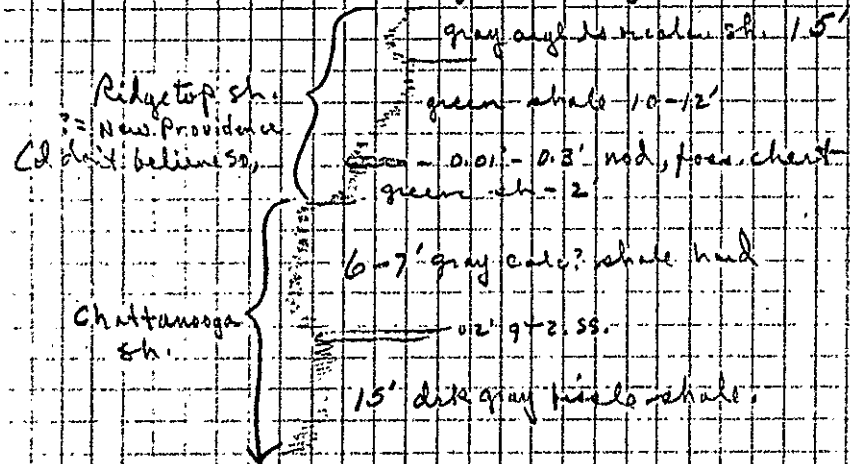 gray argl ls & calc sh. 15'
Ridgetop sh.
?= New Providence
(I don't believe so)
green shale 10-12'
0.01'-0.3' nod, foss. chert
green sh - 2'
6-7' gray calc? shale hard
Chattanooga
sh.
0.2' qtz. ss.
15' drk gray fissile shale.